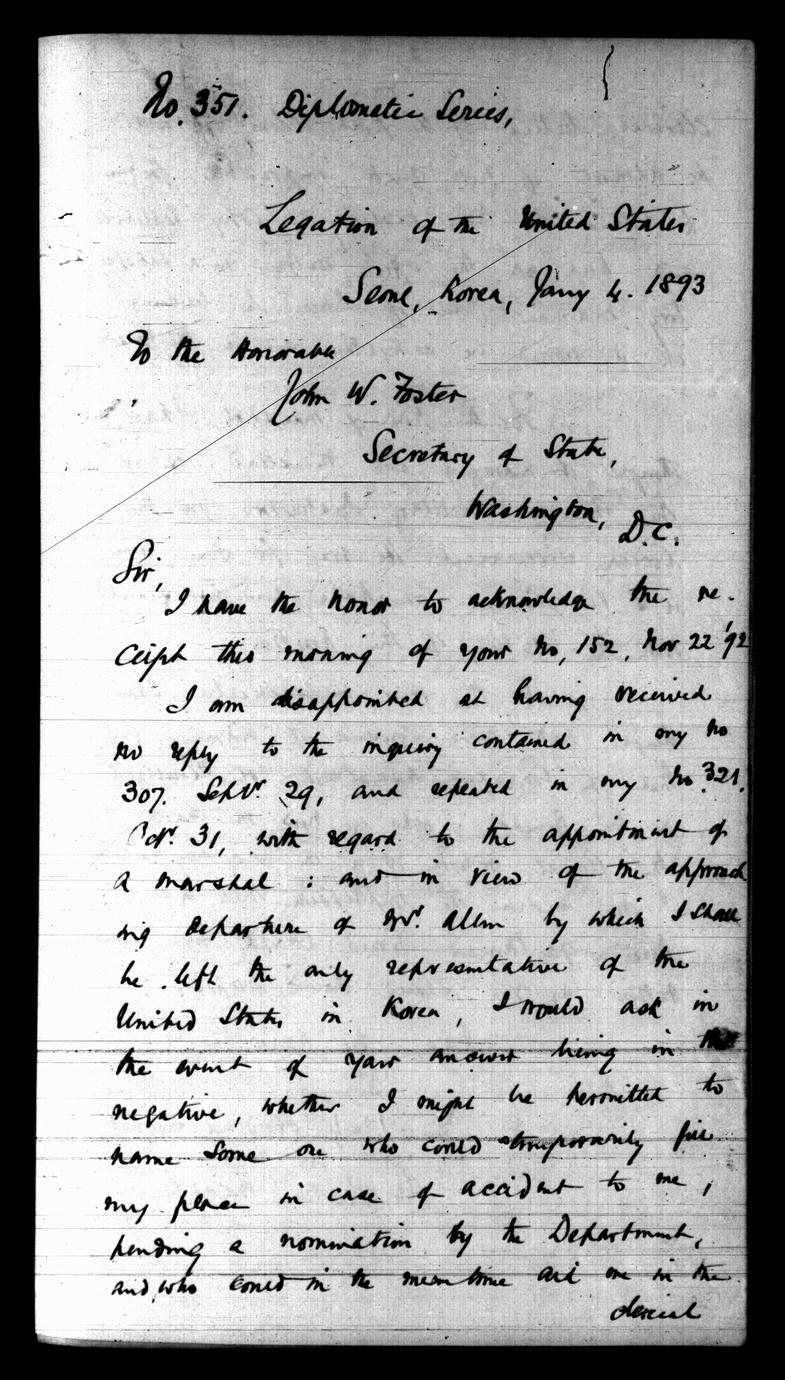 No. 351. Diplomatic Series,
Legation of the United States
Seoul, Korea, Jany 4. 1893
To the Honorable
John W. Foster
Secretary of State,
Washington, D.C.
Sir,
I have the honor to acknowledge the re-
ceipt this morning of your No, 152, Nov 22 '92
I am disappointed at having received
no reply to the inquiry contained in my No
307. Septr. 29, and repeated in my No. 321.
Octr. 31, with regard to the appointment of
a marshal : and in view of the approach
ing departure of Mr. Allen by which I shall
be left the only representative of the
United States in Korea, I would ask in
the event of your answer being in the
negative, whether I might be permitted to
name some one who could temporarily fill
my place in case of accident to me,
pending a nomination by the Department,
and who could in the meantime aid me in the
clerical